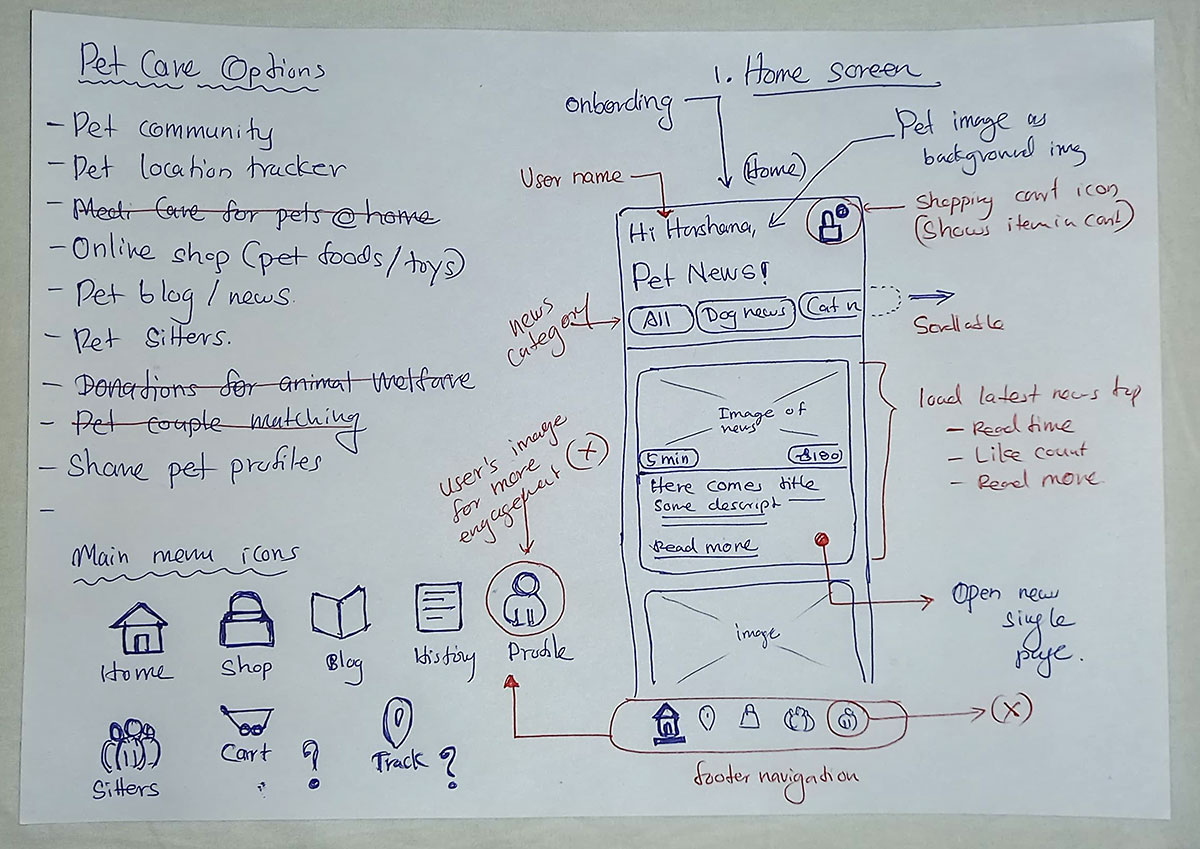 Pet Care Options
- Pet community
- Pet location tracker
- Medi Care for pets @ home
- Online shop (pet foods/toys)
- Pet blog / news.
- Pet Sitters.
- Donations for animal welfare
- Pet couple matching
- Share pet profiles
-
Main menu icons
Home
Shop
Blog
History
Profile
Sitters
Cart
?
Track
?
1. Home screen
Onbording
(Home)
Pet image as
background img
User name
Shopping cart icon
(Shows item in cart)
Hi Harshana,
Pet News!
news
category
All
Dog news
Cat n
Scrollable
Image of
news
5 min
Here comes title
Some descript
Read more
load latest news top
- Read time
- Like count
- Read more
user's image
for more
engagement
(X)
Open new
single
page.
image
(X)
footer navigation